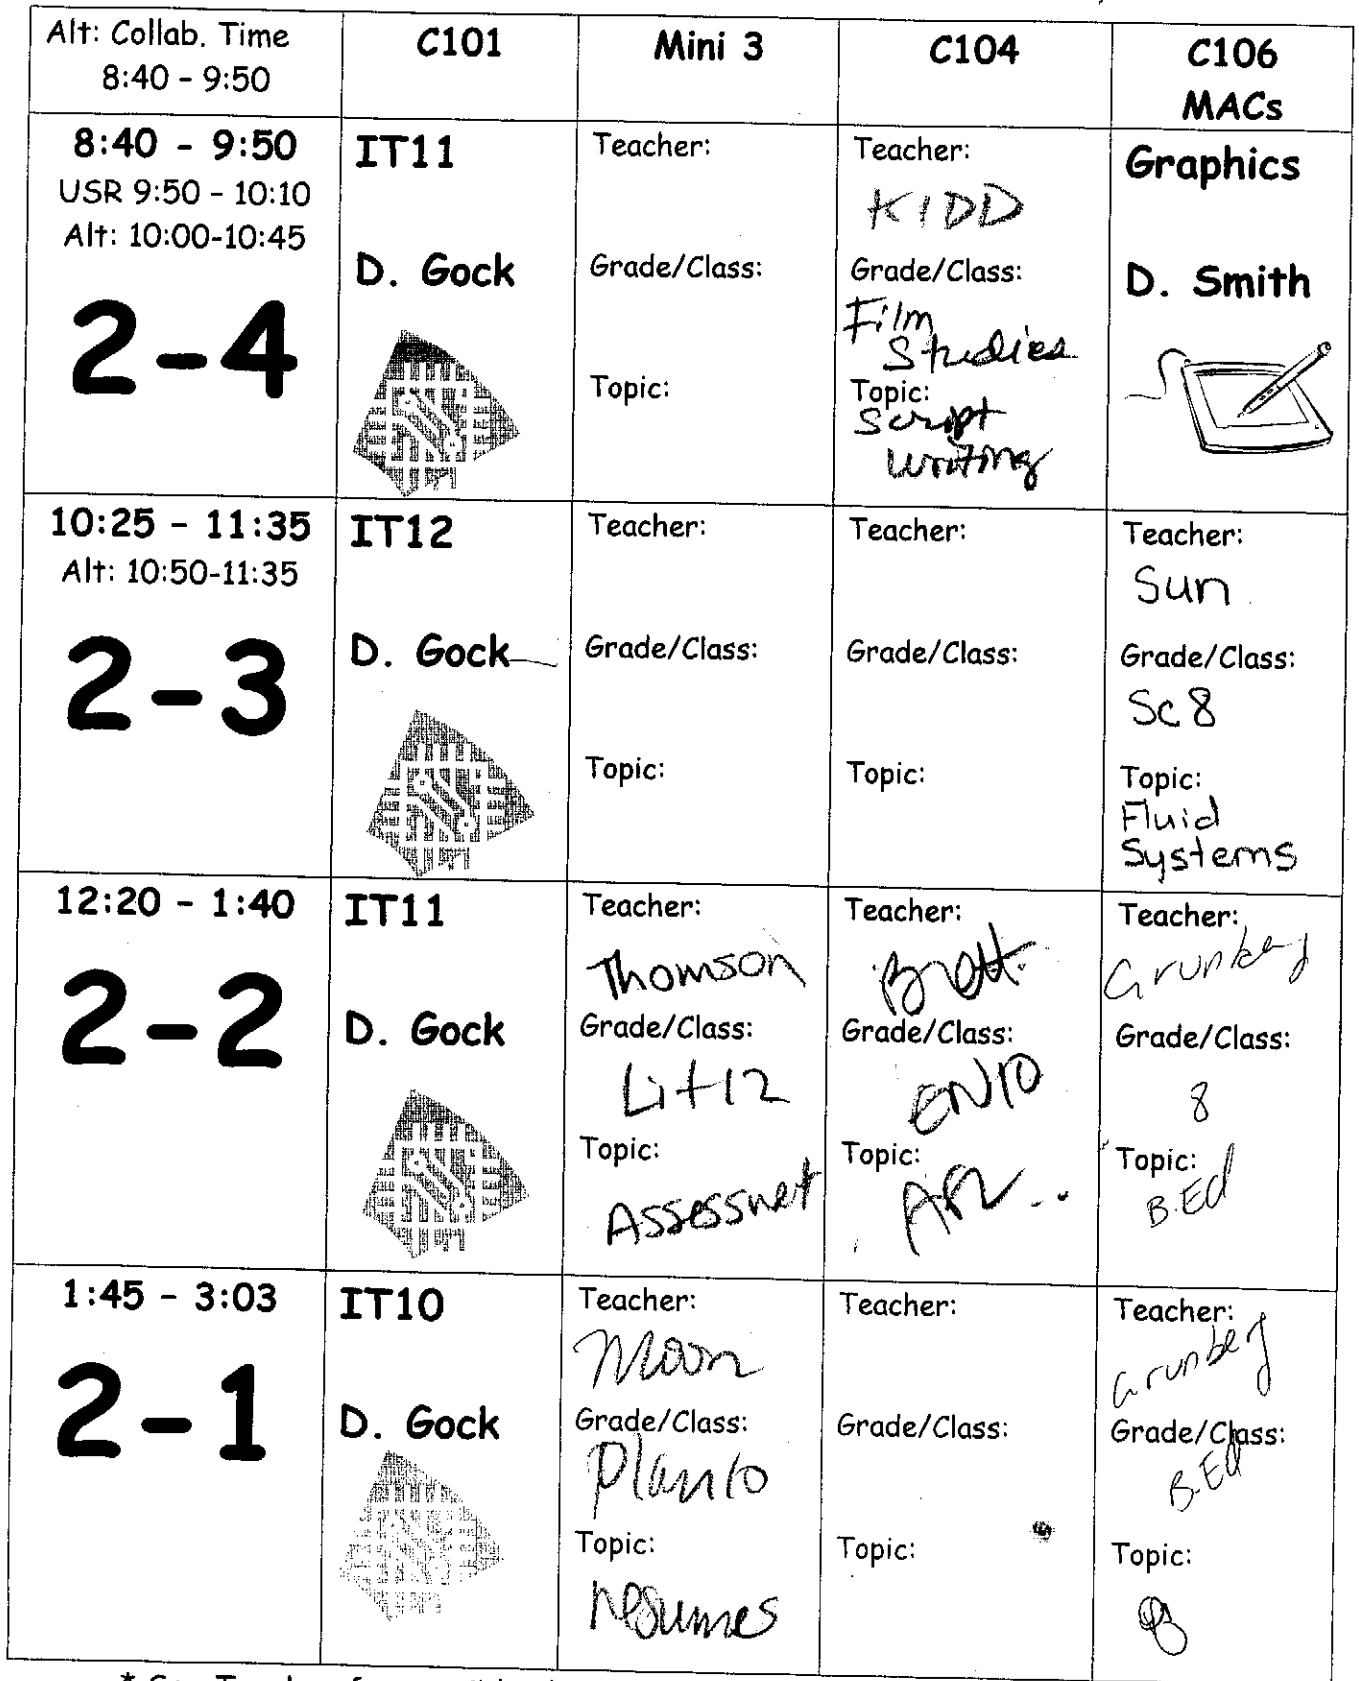 Alt: Collab. Time
8:40 - 9:50
C101
Mini 3
C104
C106
MACs
8:40 - 9:50
USR 9:50 - 10:10
Alt: 10:00-10:45
2-4
IT11
D. Gock
Teacher:
Grade/Class:
Topic:
Teacher:
KIDD
Grade/Class:
Film
Studies
Topic:
Script
Writing
Graphics
D. Smith
10:25 - 11:35
Alt: 10:50-11:35
2-3
IT12
D. Gock
Teacher:
Grade/Class:
Topic:
Teacher:
Grade/Class:
Topic:
Teacher:
Sun
Grade/Class:
Sc 8
Topic:
Fluid
Systems
12:20 - 1:40
2-2
IT11
D. Gock
Teacher:
Thomson
Grade/Class:
Lit12
Topic:
Assessmet
Teacher:
Grade/Class:
EN10
Topic:
Teacher:
Grunberg
Grade/Class:
8
Topic:
B.Ed
1:45 - 3:03
2-1
IT10
D. Gock
Teacher:
Moon
Grade/Class:
Plan10
Topic:
resumes
Teacher:
Grade/Class:
Topic:
Teacher:
Grunberg
Grade/Class:
B.Ed
Topic:
8